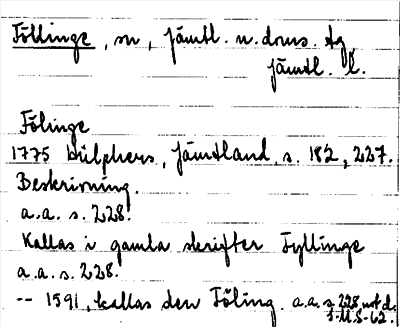 Föllinge, sn, Jämtl. n. doms. tg
Jämtl. l.
Fölinge
1775 Hülphers, Jämtland, s. 182, 227.
Beskrivning.
a.a. s. 228.
Kallas i gamla skrifter Fyllinge
a.a. s. 228.
-- 1591, kallas den Föling. a.a. s 228 not d.
J.M.S-62.